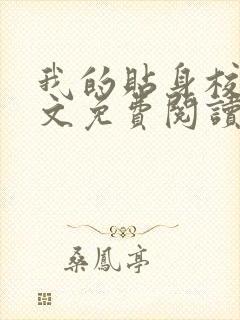 我的貼身校
文免費閱讀
桑鳳亭